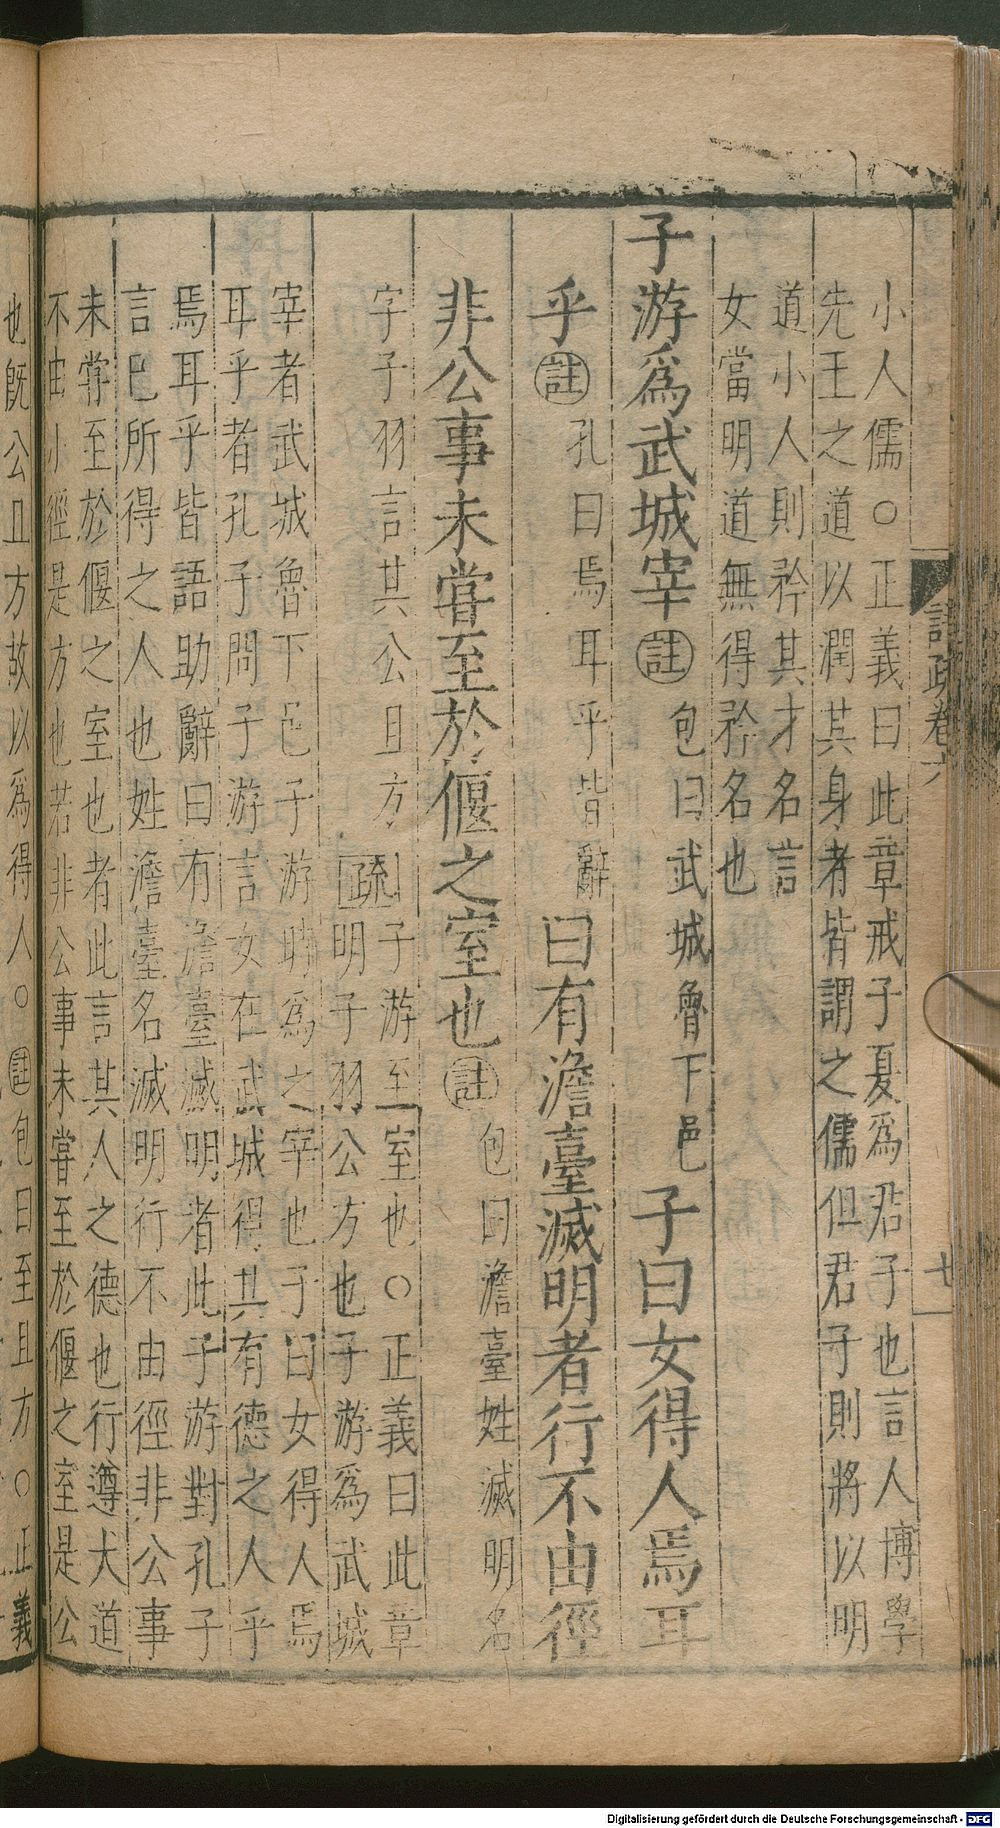 小人儒○正義曰此章戒子夏爲君子也言人博學
先王之道以潤其身者皆謂之儒但君子則將以明
道小人則矜其才名言
女當明道無得矜名也
子游爲武城宰註包曰武城魯下邑子曰女得人焉耳
乎註孔曰焉耳乎皆辭曰有澹臺滅明者行不由徑
非公事未嘗至於偃之室也註包曰澹臺姓滅明名
字子羽言其公且方
疏子游至室也○正義曰此章
明子羽公方也子游爲武城
宰者武城魯下邑子游時爲之宰也子曰女得人焉
耳乎者孔子問子游言女在武城得其有德之人乎
焉耳乎皆語助辭曰有澹臺滅明者此子游對孔子
言已所得之人也姓澹臺名滅明行不由徑非公事
未嘗至於偃之室也者此言其人之德也行遵大道
不由小徑是方也若非公事未嘗至於偃之室是公
也既公且方故以爲得人○註包曰至且方○正義
疏卷六
七
Digitalisierung gefördert durch die Deutsche Forschungsgemeinschaft - DFG